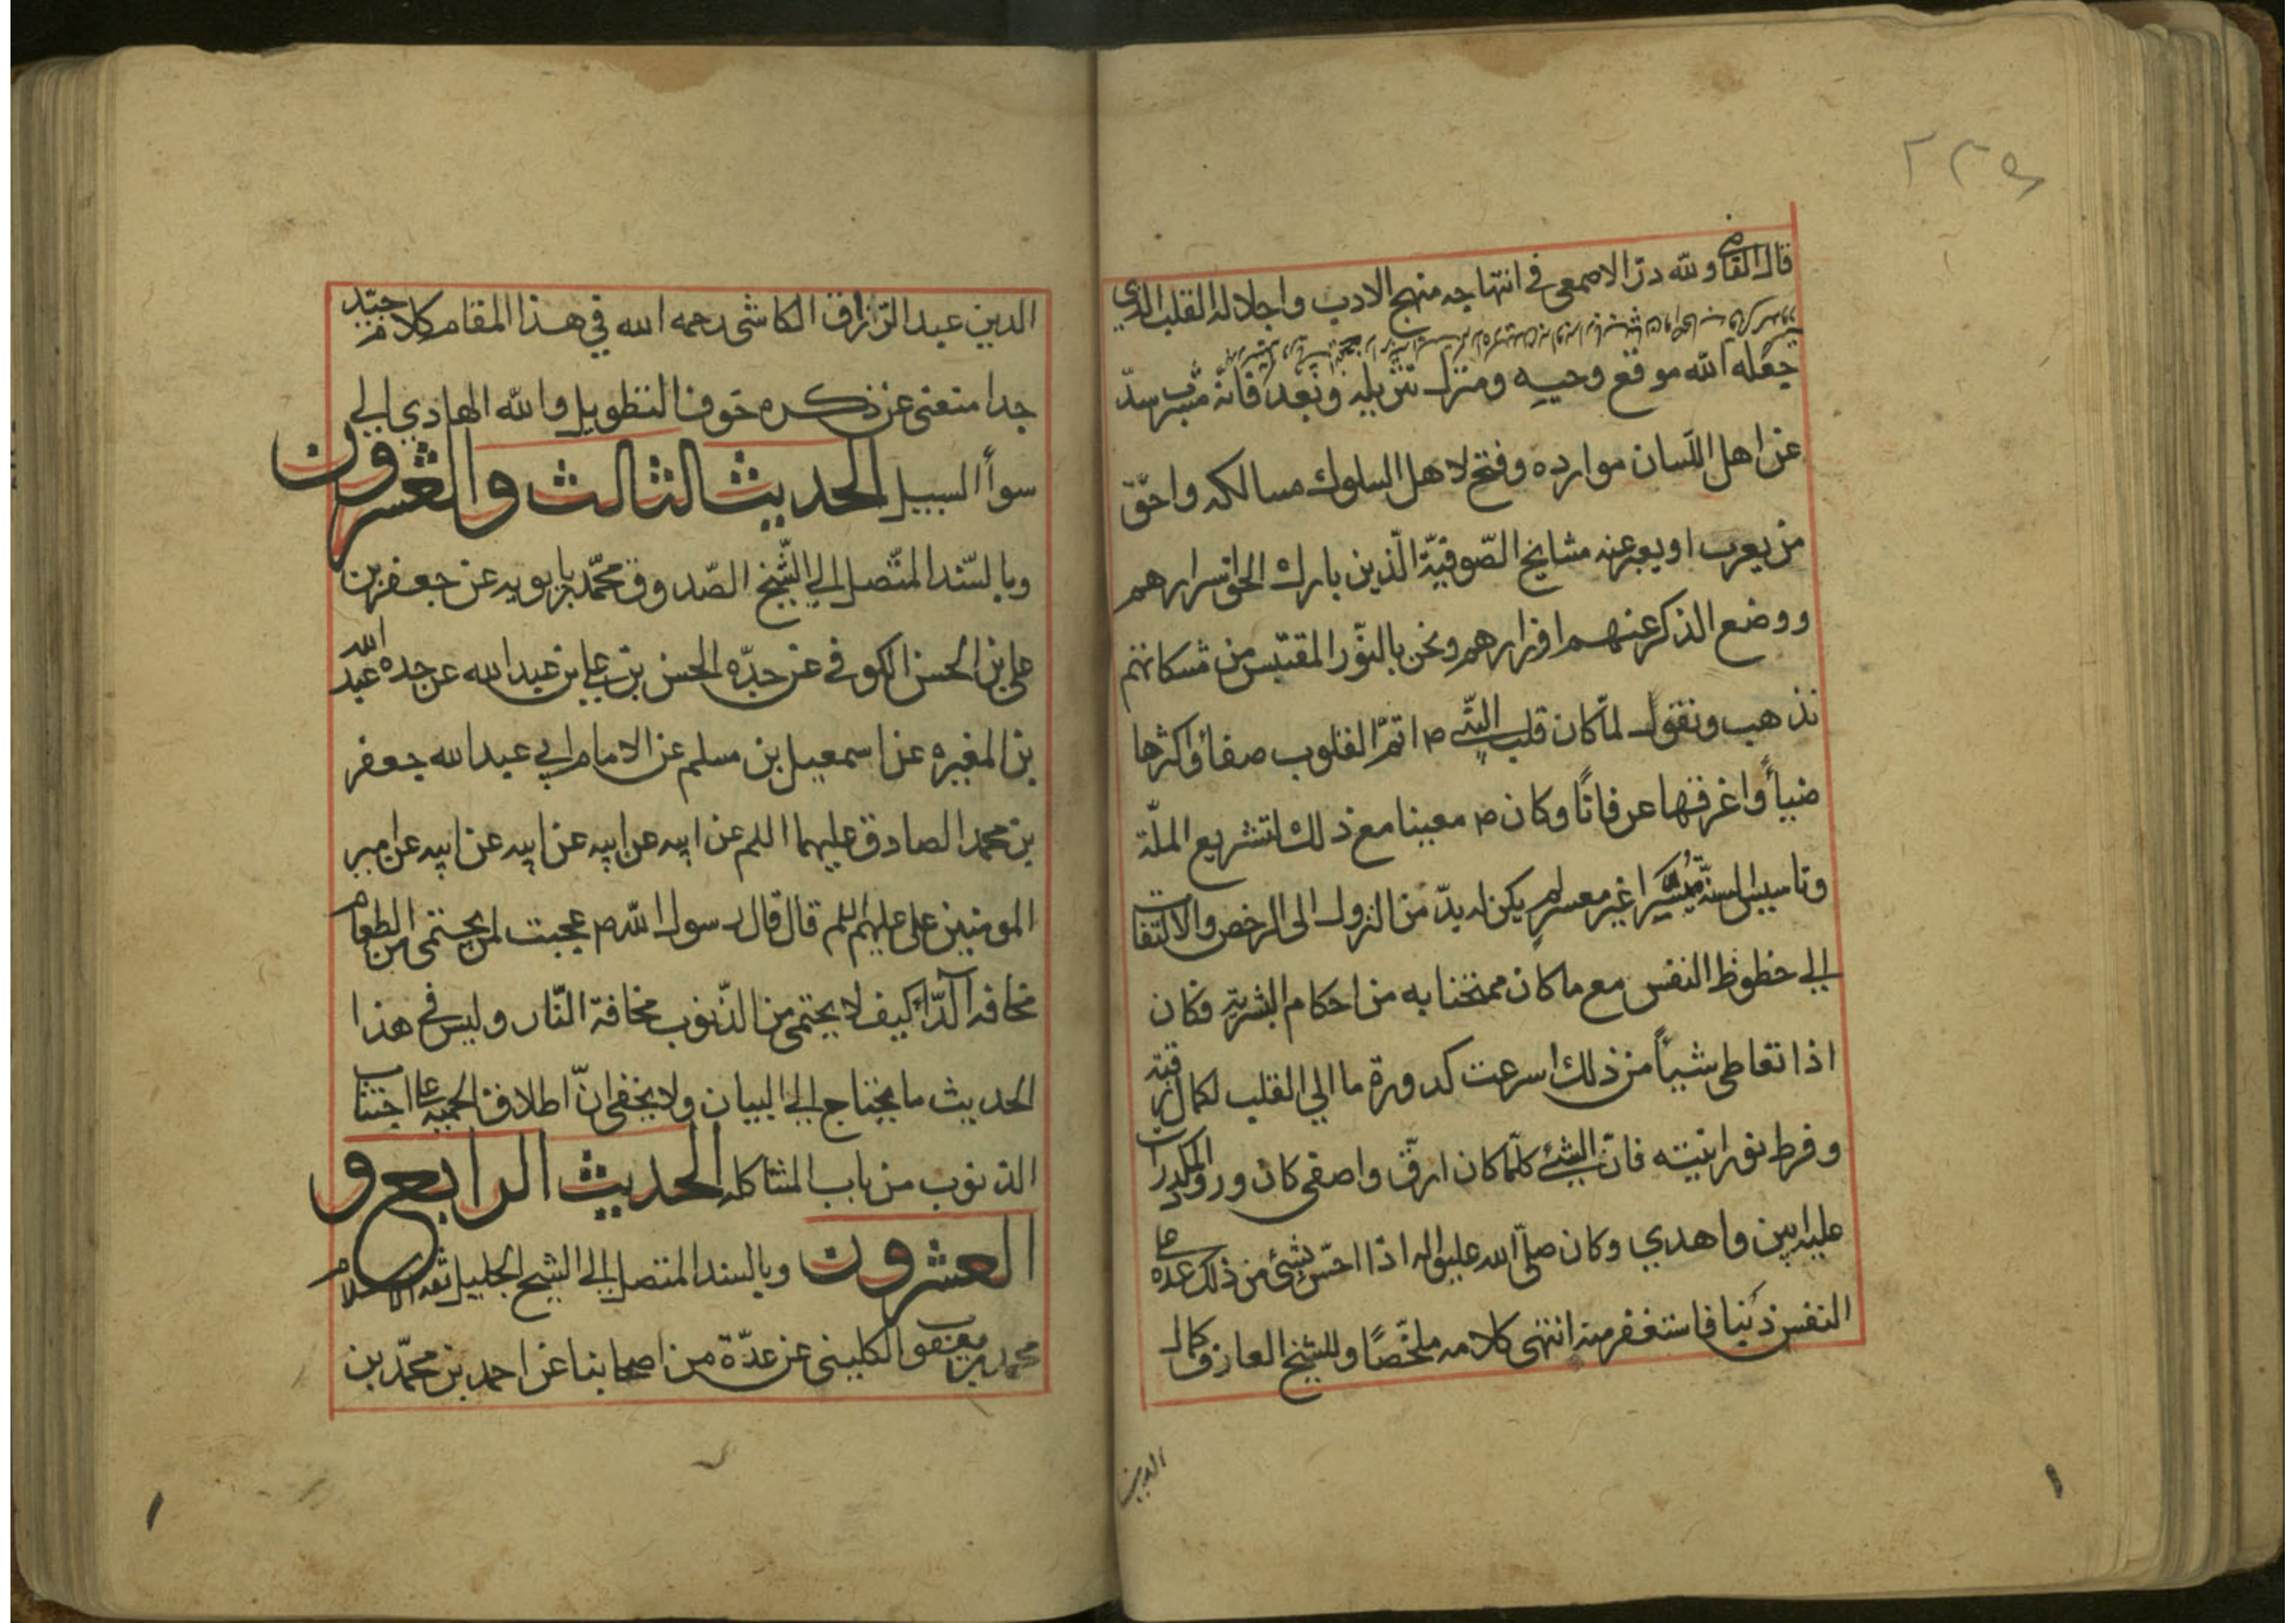 ٢٢٥
قال القاضي ولله درّ الاصمعي في انتهاجه منهج الادب واجلاله القلب الذي
جعله الله موقع وحيه ومنزل تنزيله وبعد فانه مشرب سدّ
عن اهل اللّسان موارده وفتح لاهل السلوك مسالكه واحقّ
من يعرب او يعبر عنه مشايخ الصّوفيّة الّذين بارك الحق اسرارهم
ووضع الذكر عنهم اوزارهم ونحن بالنّور المقتبس من مشكاتهم
نذهب ونقول لمّا كان قلب النّبي ص اتمّ القلوب صفاءً واكثرها
ضياءً واغرفها عرفانًا وكان ص معينا مع ذلك لتشريع الملّة
وتاسيس السنة ميسّرا غير معسر لم يكن له بدّ من النزول الى الرخص والالتفات
الي حظوظ النفس مع ما كان ممتحنا به من احكام البشرية فكان
اذا تعاطى شيأً من ذلك اسرعت كدورة ما الي القلب لكمال رقته
وفرط نورانيته فانّ الشئ كلّما كان ارقّ واصفى كان ورود المكدرات
عليه ابين واهدي وكان صلّى الله عليه واله اذا احسّ بشئ من ذلك عده على
النفس ذنبا فاستغفر منه انتهى كلامه ملخّصًا وللشيخ العارف كمال
الدين
الدين عبد الرّزاق الكاشي رحمه الله في هذا المقام كلام جيّد
جدا متعنى عن ذكره خوف التطويل والله الهادي الي
سوأ السبيل الحديث الثالث والعشرون
وبالسّند المتّصل الي الشّيخ الصّدوق محمّد بن بابويه عن جعفر بن
علي بن الحسن الكوفي عن جدّه الحسن بن علي بن عبد الله عن جده عبد الله
بن المغيره عن اسمعيل بن مسلم عن الامام ابي عبد الله جعفر
بن محمد الصادق عليهما اللم عن ابيه عن ابيه عن ابيه عن ابيه عن امير
المومنين علي عليهم اللم قال قال رسول الله ص عجبت لمن يحتمى من الطعام
مخافه الدّاء كيف لا يحتمى من الذّنوب مخافة النّار وليس في هذا
الحديث ما يحتاج الي البيان ولا يخفى انّ اطلاق الحميه على اجتناب
الذنوب من باب المشاكله الحديث الرابع و
العشرون وبالسند المتصل الي الشيخ الجليل ثقه الاسلام
محمد بن يعقوب الكليني عن عدّة من اصحابنا عن احمد بن محمّد بن